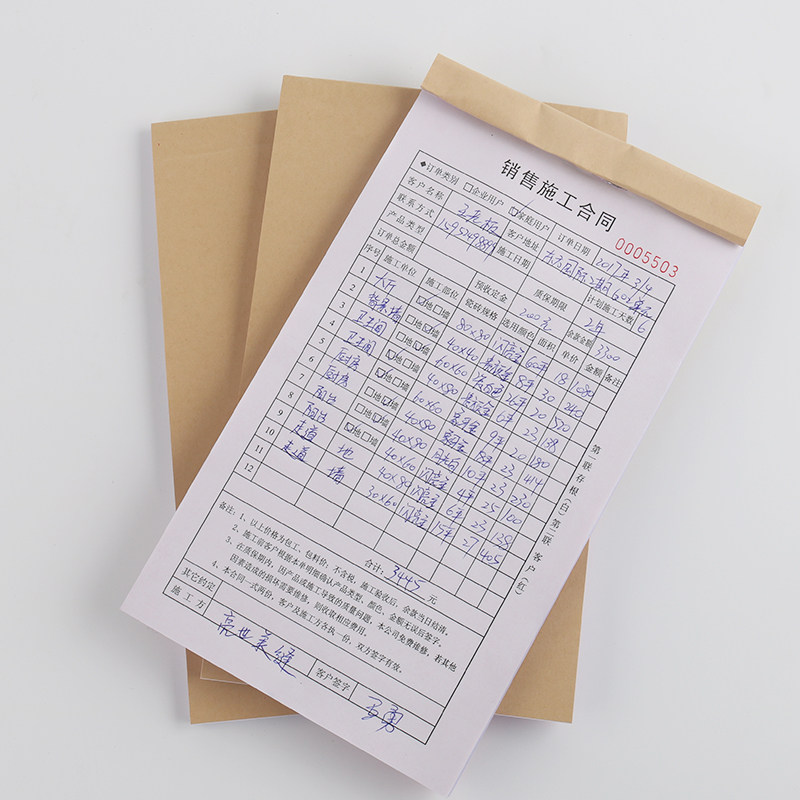 销售施工合同
0005503
◆订单类别 □企业用户 ☑家庭用户 订单日期 2017年3/4
客户名称 王老板 客户地址
联系方式 施工日期 计划施工天数 6
产品类型 质保期限 2年
订单总金额 预收定金 2000元 余款金额 3300
序号 施工单位 施工部位 瓷砖规格 选用颜色 面积 单价 金额 备注
1 大厅 ☑地□墙 80×80 闪亮金 60平 18 1080
2 背景墙 □地☑墙 40×40 8平 30 240
3 卫生间 ☑地□墙 60×60 26平 20 520
4 卫生间 □地☑墙 40×80 6平 23 138
5 厨房 ☑地□墙 60×60 9平 20 180
6 厨房 □地☑墙 40×80 18平 23 414
7 阳台 ☑地□墙 40×80 月光白 10平 23 230
8 阳台 40×60 闪亮金 4平 25 100
9 走道 地 40×80 闪亮金 6平 23 138
10 走道 墙 30×60 闪亮金 15平 27 405
11
12
合计: 3445 元
备注: 1、以上价格为包工、包料价; 不含税, 施工验收后, 余款当日结清。
2、施工前客户根据本单明细确认产品类型、颜色, 金额无误后签字。
3、在质保期内, 因产品或施工导致的质量问题, 本公司免费维修, 若其他
因素造成的损坏需要维修, 则收取相应费用。
4、本合同一式两份, 客户及施工方各执一份, 双方签字有效。
其它约定
施工方 亮世美缝 客户签字
第一联存根(白) 第二联客户(红)